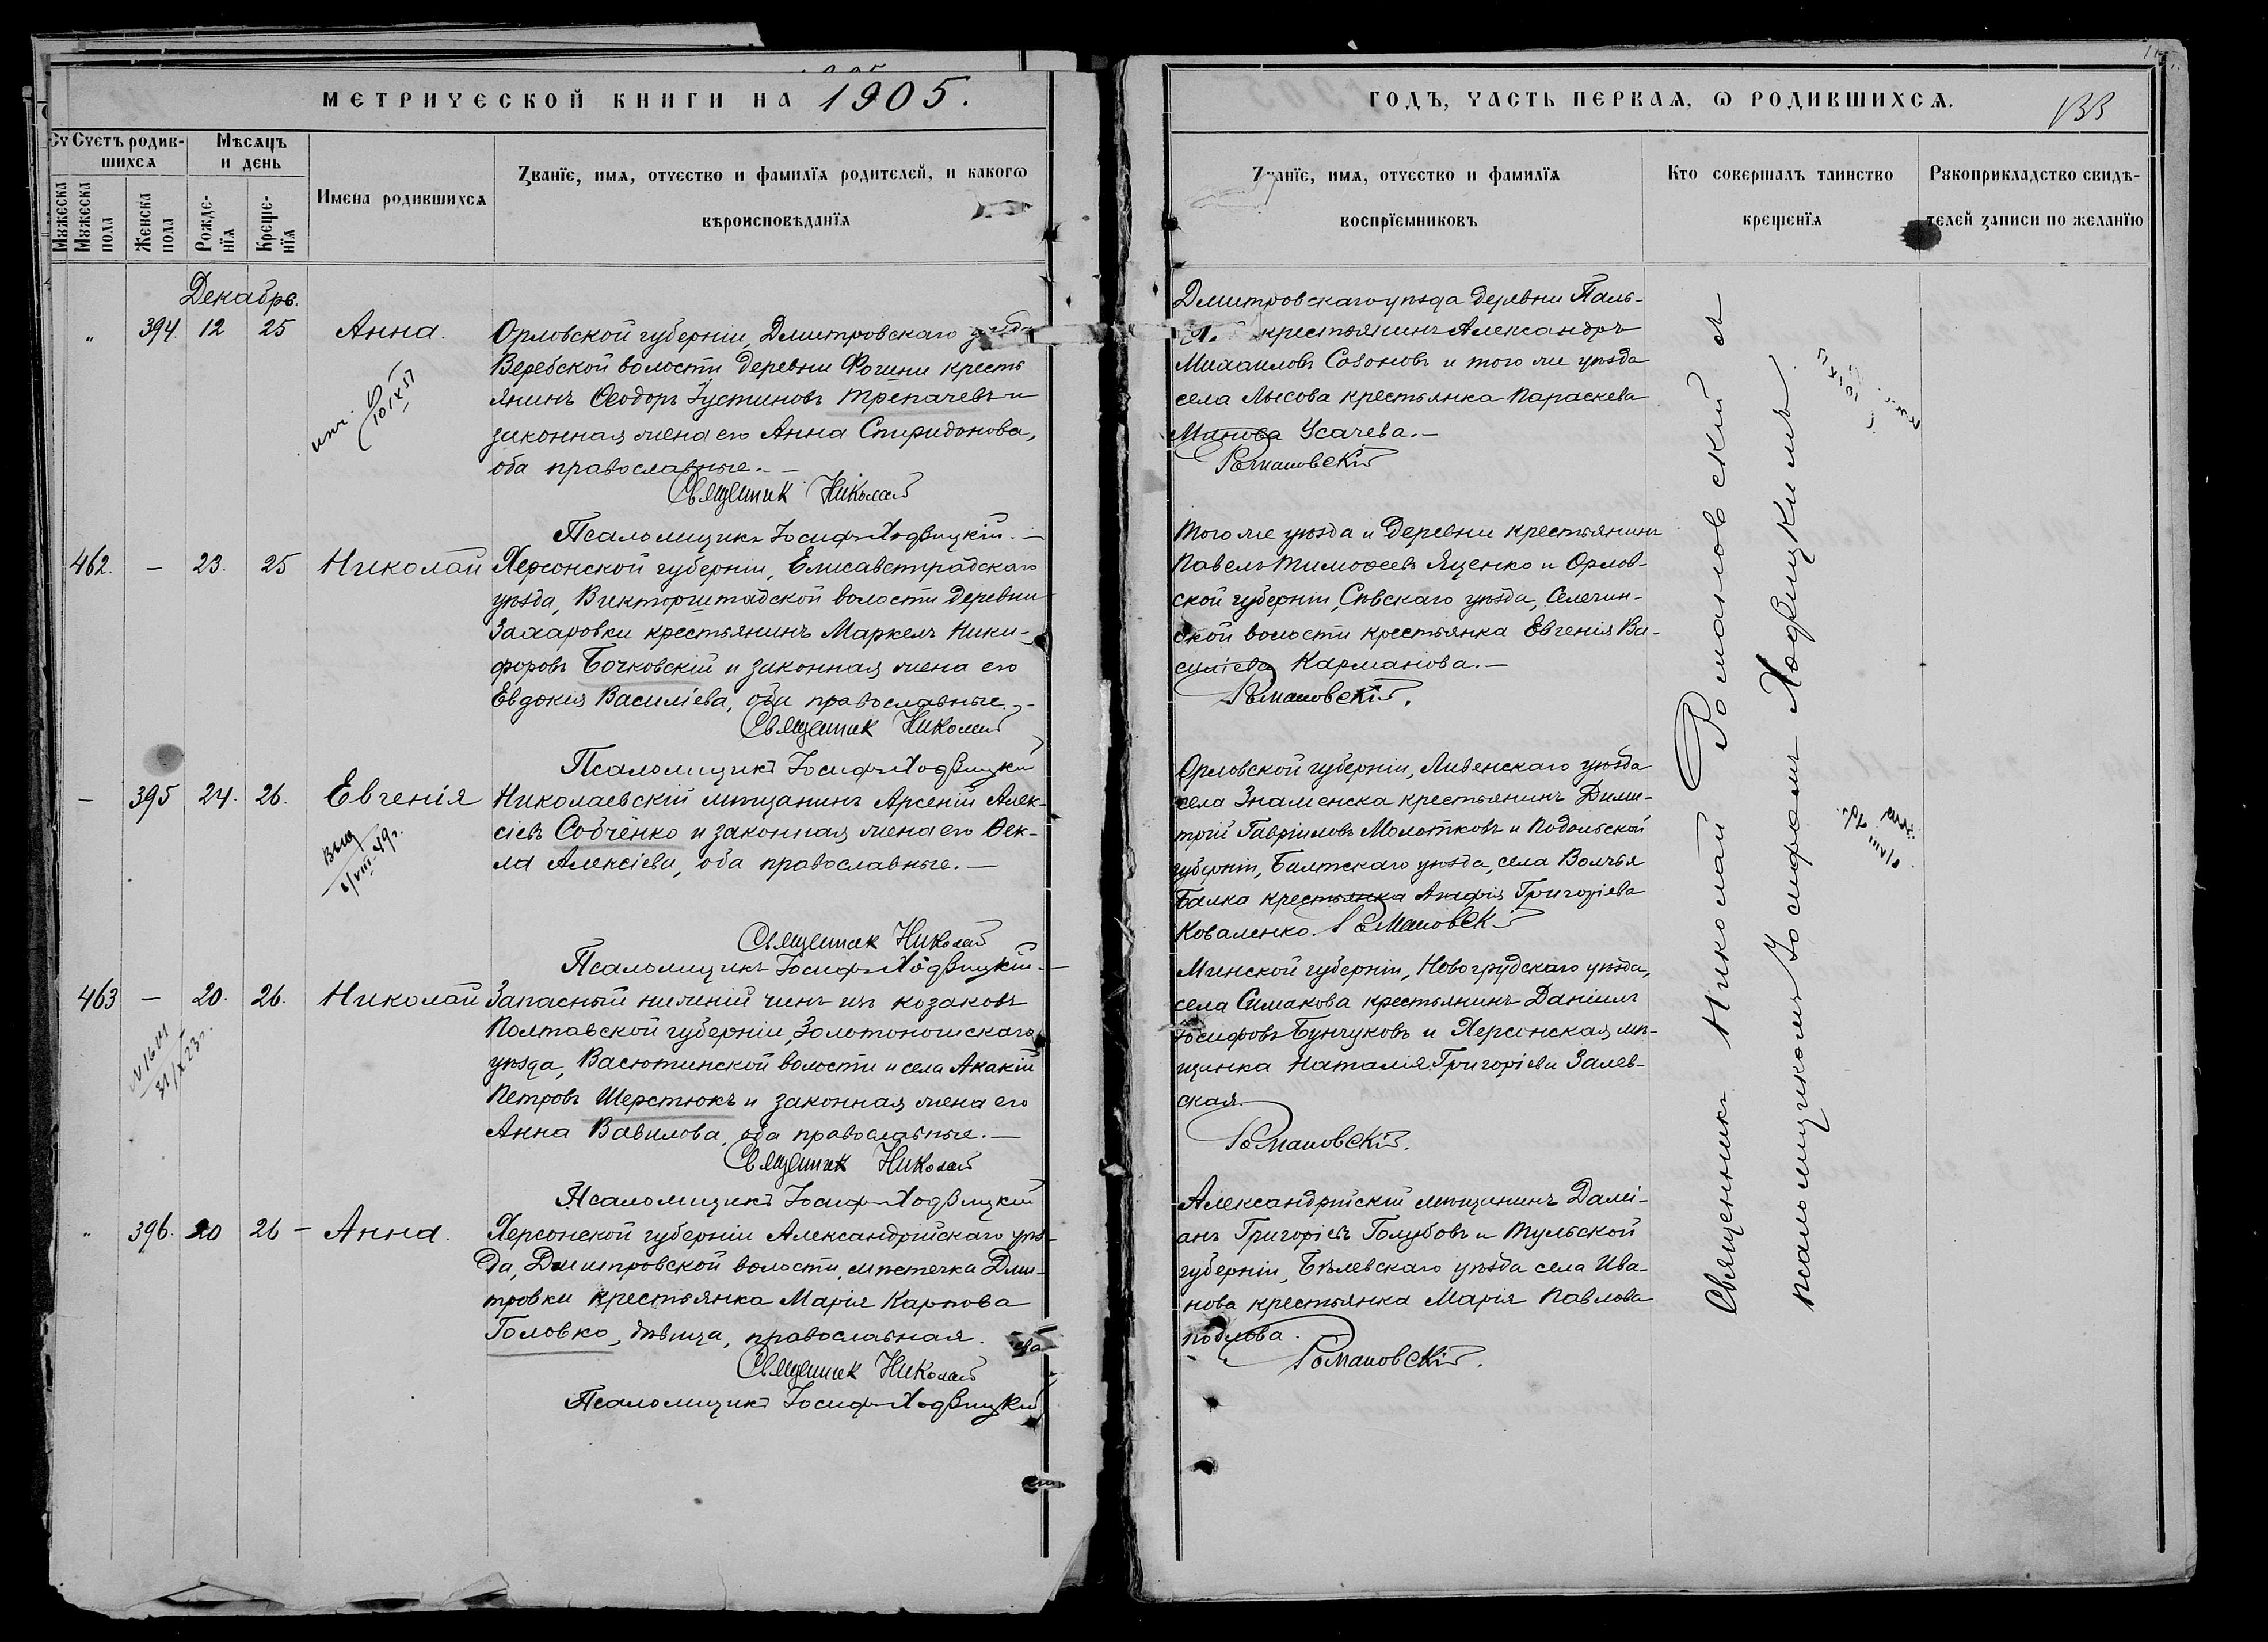 МЕТРИЧЕСКОЙ КНИГИ НА 1905.
Счетъ родившихся
Мѣсяцъ и день
Имена родившихся
Званіе, имя, отчество и фамилія родителей, и какого
вѣроисповѣданія
Мужеска пола
Женска пола
Рожденія
Крещенія
Декабрь.
" 394. 12 25 Анна.
Орловской губерніи, Дмитровскаго уѣзда
Веребской волости деревни Фошни кресть
янинъ Ѳеодоръ Іустиновъ Трепачевъ и
законная жена его Анна Спиридонова,
оба православные. —
Священник Николай
Псаломщикъ Іосифъ Ходвицкій. —
462. — 23. 25 Николай
Херсонской губерніи, Елисаветградскаго
уѣзда, Викторштадской волости деревни
Захаровки крестьянинъ Маркелъ Ники-
форовъ Бочковскій и законная жена его
Евдокия Василіева, оба православные. —
Священник Николай
Псаломщикъ Іосифъ Ходвицкій
— 395 24. 26. Евгенія
выд
Николаевскій мѣщанинъ Арсеній Алек-
сіевъ Собченко и законная жена его Ѳек-
ла Алексіева, оба православные. —
Священник Николай
Псаломщикъ Іосифъ Ходвицкій. —
463 — 20. 26. Николай
Запасный нижній чинъ изъ козаковъ
Полтавской губерніи, Золотоношскаго
уѣзда, Васютинской волости и села Акакій
Петровъ Шерстюкъ и законная жена его
Анна Вавилова, оба православные. —
Священник Николай
Псаломщикъ Іосифъ Ходвицкій
" 396. 20 26 — Анна.
Херсонской губерніи Александрійскаго уѣз-
да, Дмитровской волости, мѣстечка Дми-
тровки крестьянка Марія Карпова
Головко, дѣвица, православная.
Священник Николай
Псаломщикъ Іосифъ Ходвицкій
ГОДЪ, ЧАСТЬ ПЕРВАЯ, О РОДИВШИХСЯ.
133
Званіе, имя, отчество и фамилія
воспріемниковъ
Кто совершалъ таинство
крещенія
Рукоприкладство свидѣ-
телей записи по желанію
Дмитровскаго уѣзда деревни Паль-
крестьянинъ Александръ
Михаиловъ Сафоновъ и того же уѣзда
села Лысова крестьянка Параскева
Минова Усачева. —
Романовскій
Того же уѣзда и деревни крестьянинъ
Павелъ Тимоѳеевъ Яценко и Орлов-
ской губерніи, Сѣвскаго уѣзда, Селечин-
ской волости крестьянка Евгенія Ва-
силіева Карманова. —
Романовскій.
Орловской губерніи, Ливенскаго уѣзда
села Знаменска крестьянинъ Дими-
трій Гавріиловъ Молотковъ и Подольской
губерніи, Балтскаго уѣзда, села Волчья
Балка крестьянка Агафія Григоріева
Коваленко. Романовскій
Минской губерніи, Новогрудскаго уѣзда,
села Симакова крестьянинъ Даніилъ
Іосифовъ Бунчуковъ и Херсонская мѣ-
щанка Наталія Григоріева Залев-
ская.
Романовскій.
Александрійскій мѣщанинъ Дамі-
анъ Григоріевъ Голубовъ и Тульской
губерніи, Бѣлевскаго уѣзда села Ива-
нова крестьянка Марія Павлова
Романовскій.
Священникъ Николай Романовскій съ
псаломщикомъ Іосифомъ Ходвицкимъ.